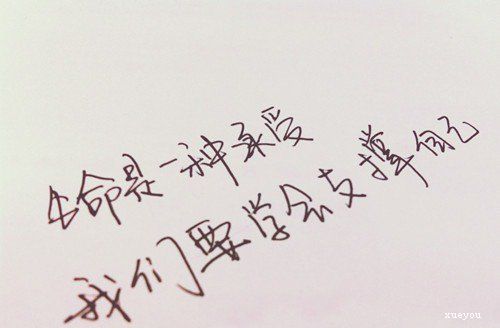 生命是一种承受
我们要学会支撑自己
xueyou